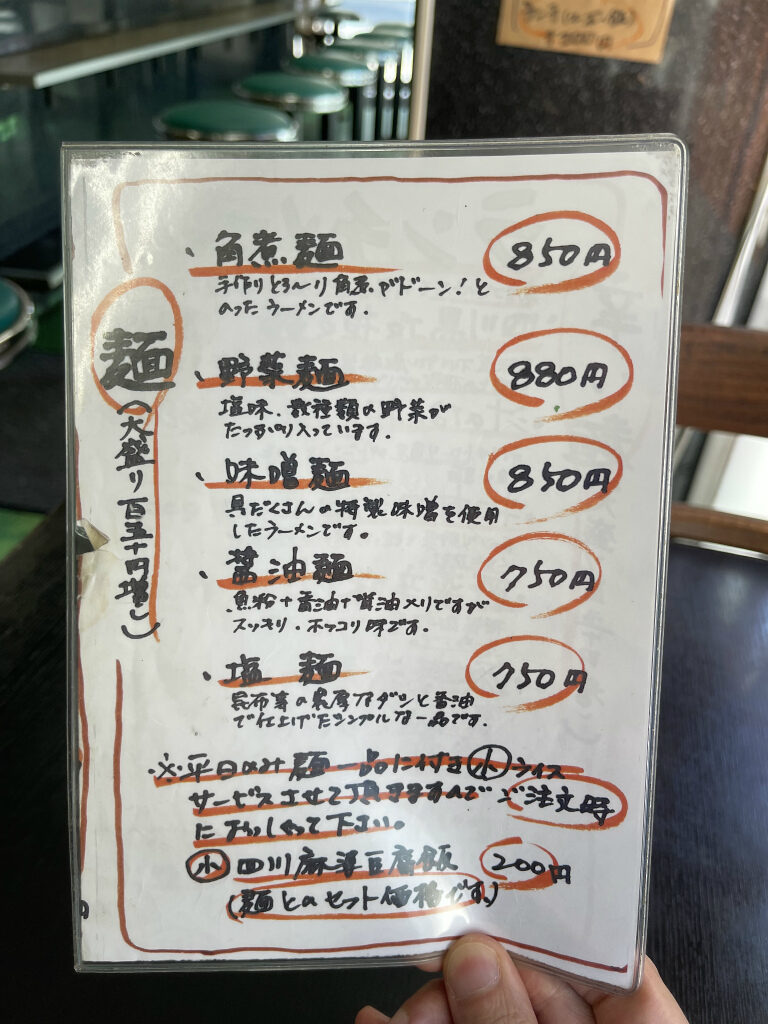 角煮麺 850円
手作りとろ〜り角煮がドーン!と
のったラーメンです.
麺
(大盛り百五十円増し)
野菜麺 880円
塩味.数種類の野菜が
たっぷり入っています.
味噌麺 850円
具だくさんの特製味噌を使用
したラーメンです。
醤油麺 750円
魚粉+香油+醤油メリですが
スッキリ・ホッコリ味です.
塩麺 750円
昆布等の濃厚なダシと香油
で仕上げたシンプルな一品です.
※平日のみ麺一品に付き小ライス
サービスさせて頂きますんでご注文時
におっしゃって下さい。
小 四川麻婆豆腐飯 200円
(麺とのセット価格です。)